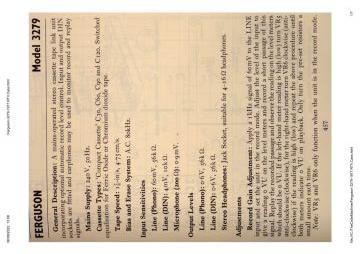 FERGUSON
Model 3279
General Description: A mains-operated stereo cassette tape link unit
incorporating optional automatic record level control. Input and output DIN
sockets are fitted and earphones may be used to monitor record and replay
signals.
Mains Supply: 240V, 50 Hz.
Cassette Type: "Compact Cassette" C30, C60, C90 and C120. Switched
equalisation for Ferric Oxide or Chromium dioxide tape.
Tape Speed: 1⅞-in/s, 4·75 cm/s.
Bias and Erase System: A.C. 80kHz.
Input Sensitivities
Line (Phono): 60mV, 56k Ω.
Microphone (200 Ω): 0·9mV.
Output Levels
Line (Phono): 0·6V, 56k Ω.
Line (DIN): 0·6V, 56k Ω.
Stereo Headphones: Jack Socket, suitable for 4–16 Ω headphones.
Adjustments
Record Gain Adjustments: Apply a 1kHz signal of 60mV to the LINE
input and set the unit in the record mode. Adjust the level of the input to
give a reading 0 VU on the level meters and record a short passage of this
signal. Replay the recorded signal and observe the reading on the level meters
which should be 0 VU. If the left-hand meter reading is high (low) turn VR5
anti-clockwise (clockwise); for the right-hand meter turn VR6 clockwise (anti-
clockwise) if the reading is high (low) and repeat the above procedure until
both meters indicate 0 VU on playback. Only turn the pre-set resistors a
small amount each time.
Note: VR5 and VR6 only function when the unit is in the record mode.
457